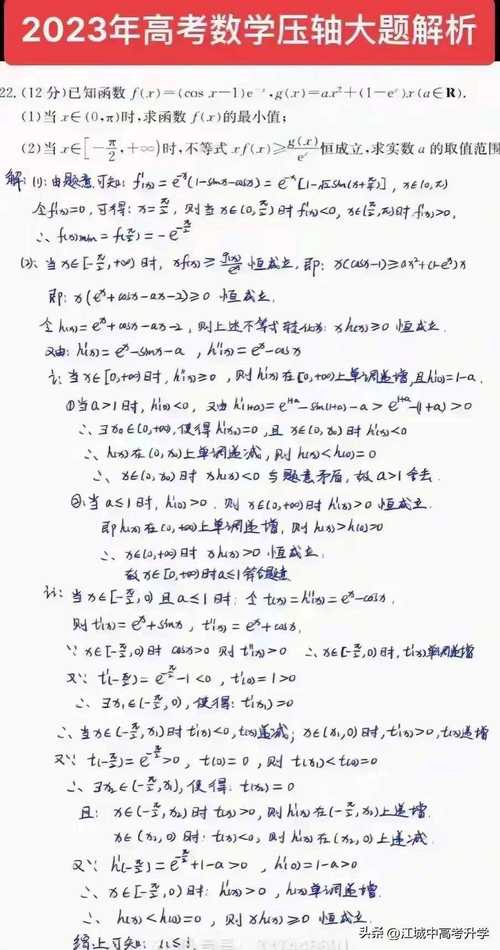 2023年高考数学压轴大题解析
22.(12分)已知函数 f(x)=(cos x-1)e⁻ˣ,g(x)=ax²+(1-eˣ)x(a∈R).
(1)当 x∈(0,π)时,求函数 f(x)的最小值;
(2)当 x∈[-π/2,+∞)时,不等式 xf(x)≥g(x)/eˣ恒成立,求实数 a 的取值范围
解: (1): 由题意可知: f'(x)=e⁻ˣ(1-sinx-cosx)=e⁻ˣ[1-√2sin(x+π/4)], x∈(0,π)
令f'(x)=0, 可得: x=π/2, 则当x∈(0,π/2)时f'(x)<0, x∈(π/2,π)时f'(x)>0,
∴ f(x)min=f(π/2)=-e^(-π/2)
(2): 当x∈[-π/2,+∞)时, xf(x)≥g(x)/eˣ 恒成立, 即: x(cosx-1)≥ax²+(1-eˣ)x
即: x(eˣ+cosx-ax-2)≥0 恒成立.
令h(x)=eˣ+cosx-ax-2, 则上述不等式转化为: xh(x)≥0 恒成立.
又由: h'(x)=eˣ-sinx-a, h''(x)=eˣ-cosx
i: 当x∈[0,+∞)时, h''(x)≥0, 则h'(x)在[0,+∞)上单调递增, 且h'(0)=1-a.
①当a>1时, h'(0)<0, 又由h'(1+a)=e^(1+a)-sin(1+a)-a>e^(1+a)-(1+a)>0
∴ ∃x₀∈(0,+∞), 使得h'(x₀)=0, 且x∈(0,x₀)时h'(x)<0
∴ h(x)在(0,x₀)上单调递减, 则h(x)<h(0)=0
∴ x∈(0,x₀)时xh(x)<0 与题意矛盾, 故a>1舍去.
②当a≤1时, h'(0)>0. 则x∈(0,+∞)时h'(x)>0 恒成立.
即h(x)在(0,+∞)上单调递增, 则h(x)>h(0)>0
∴ x∈(0,+∞)时xh(x)>0 恒成立.
故x∈[0,+∞)时a≤1符合题意
ii: 当x∈[-π/2,0)且a≤1时: 令t(x)=h''(x)=eˣ-cosx.
则t'(x)=eˣ+sinx, t''(x)=eˣ+cosx,
∵ x∈[-π/2,0)时 cosx>0 则t''(x)>0 ∴ x∈[-π/2,0)时, t'(x)单调递增
又∵ t'(-π/2)=e^(-π/2)-1<0, t'(0)=1>0
∴ ∃x₁∈(-π/2,0), 使得: t'(x₁)=0
∴ 当x∈(-π/2,x₁)时t'(x)<0, t(x)递减; x∈(x₁,0)时, t'(x)>0, t(x)递增
又∵ t(-π/2)=e^(-π/2)>0, t(0)=0, 则t(x₁)<t(0)=0
∴ ∃x₂∈(-π/2,x₁), 使得: t(x₂)=0
且: x∈(-π/2,x₂)时t(x)>0, 则h'(x)在(-π/2,x₂)上递增.
x∈(x₂,0)时: t(x)<0, 则h'(x)在(x₂,0)上递减.
又∵ h'(-π/2)=e^(-π/2)+1-a>0, h'(0)=1-a>0
∴ x∈[-π/2,0)时: h'(x)>0, h(x)单调递增.
∴ h(x)<h(0)=0, 则xh(x)≥0 恒成立.
综上可知: a≤1.
头条 @江城中高考升学